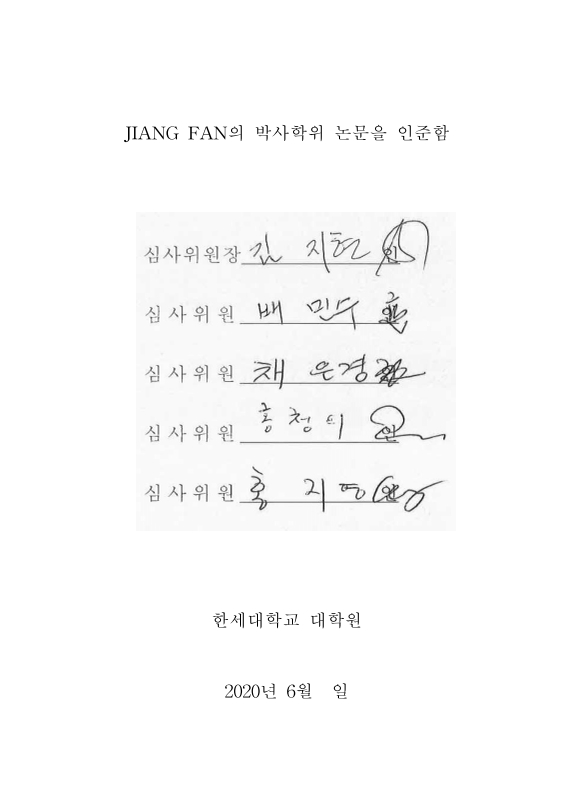 JIANG FAN의 박사학위 논문을 인준함
심사위원장 김 지현 인
심사위원 배 민수 인
심사위원 채 은경 인
심사위원 홍청의 인
심사위원 홍 지영 인
한세대학교 대학원
2020년 6월 일